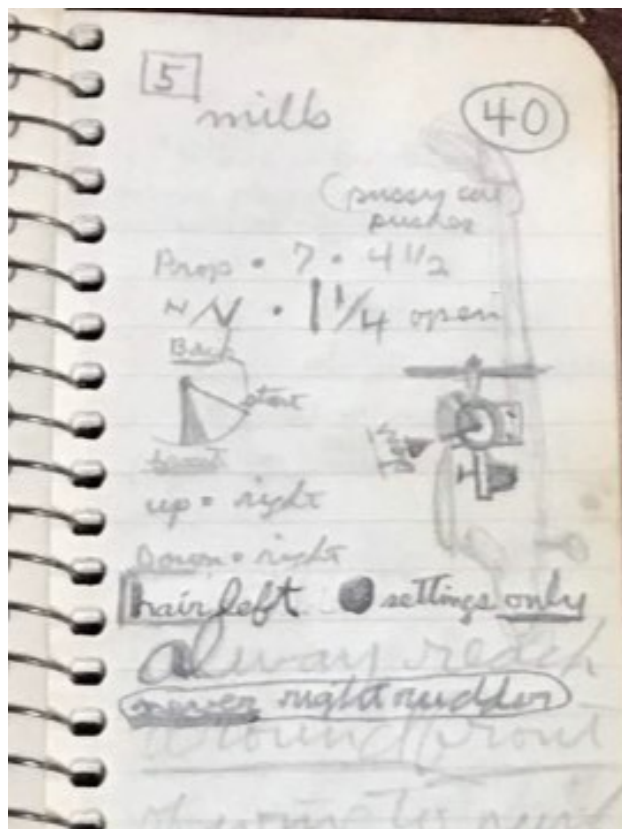 5
mills
40
(pussy cat
pusher
Prop • 7 • 4 1/2
N/V • 1 1/4 open
Back
start
up = right
Down = right
hair left ● settings only
alway reach
never right rudder
around front